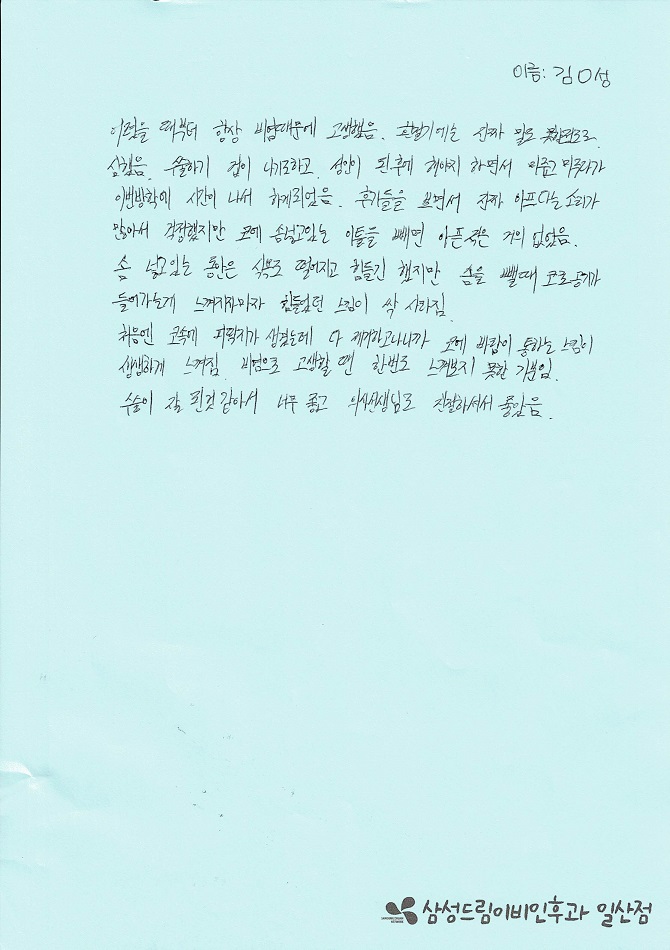 이름: 김O성
어렸을 때부터 항상 비염때문에 고생했음. 환절기에는 진짜 말도 못할정도로
심했음. 수술하기 겁이 나기도하고, 성인이 된후에 해야지 하면서 미루고 미루다가
이번방학에 시간이 나서 하게되었음. 후기들을 보면서 진짜 아프다는소리가
많아서 걱정했지만 코에 솜넣고있는 이틀을 빼면 아픈적은 거의 없었음.
솜 넣고있는 동안은 식욕도 떨어지고 힘들긴 했지만 솜을 뺄때 코로공기가
들어가는게 느껴지자마자 힘들었던 느낌이 싹 사라짐.
처음엔 코속에 피딱지가 생겼는데 다 제거하고나니까 코에 바람이 통하는 느낌이
생생하게 느껴짐. 비염으로 고생할 땐 한번도 느껴보지 못한 기분임.
수술이 잘 된것 같아서 너무 좋고 의사선생님도 친절하셔서 좋았음.
삼성드림이비인후과 일산점